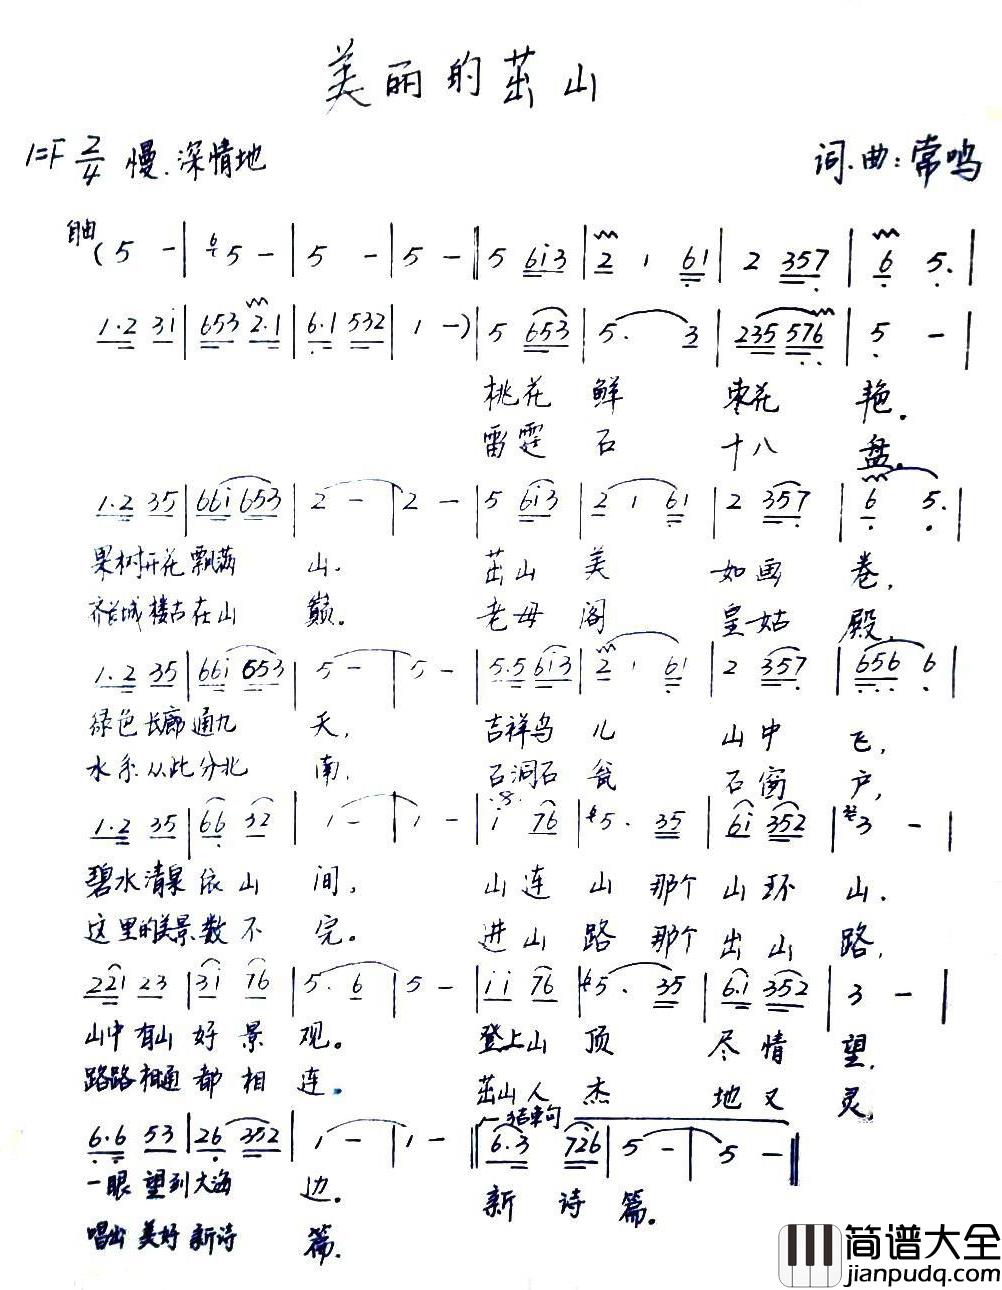 美丽的茁山
1=F 2/4 慢.深情地
词.曲：常鸣
自由
( 5 - | 5 - | 5 - | 5 - ‖ 5 6i3 | 2 1 61 | 2 357 | 6 5. |
1.2 3i | 653 2.1 | 6.1 532 | 1 -) | 5 653 | 5. 3 | 235 576 | 5 - |
桃花鲜 枣花艳.
雷霆石 十八盘.
1.2 35 | 66i 653 | 2 - | 2 - | 5 6i3 | 2 1 61 | 2 357 | 6 5. |
果树开花飘满山. 茁山美 如画卷,
齐长城楼古在山巅. 老母阁 皇姑殿,
1.2 35 | 66i 653 | 5 - | 5 - | 5.5 6i3 | 2 1 61 | 2 357 | 656 6 |
绿色长廊通九天, 吉祥鸟儿 山中飞,
水系从此分北南, 石洞石瓮 石窗户,
1.2 35 | 66 32 | 1 - | 1 - | i 76 | 5. 35 | 6i 352 | 3 - |
碧水清泉依山间, 山连山那个山环山.
这里的美景数不完。 进山路那个出山路,
22i 23 | 3i 76 | 5. 6 | 5 - | ii 76 | 5. 35 | 6.i 352 | 3 - |
山中有山好景观。 登上山顶 尽情望,
路路相通都相连. 茁山人杰 地又灵,
结束句
6.6 53 | 26 352 | 1 - | 1 - ‖ 6.3 726 | 5 - | 5 - ‖
一眼望到大海边. 新诗篇。
唱出美好新诗篇.
简谱大全
jianpudq.com